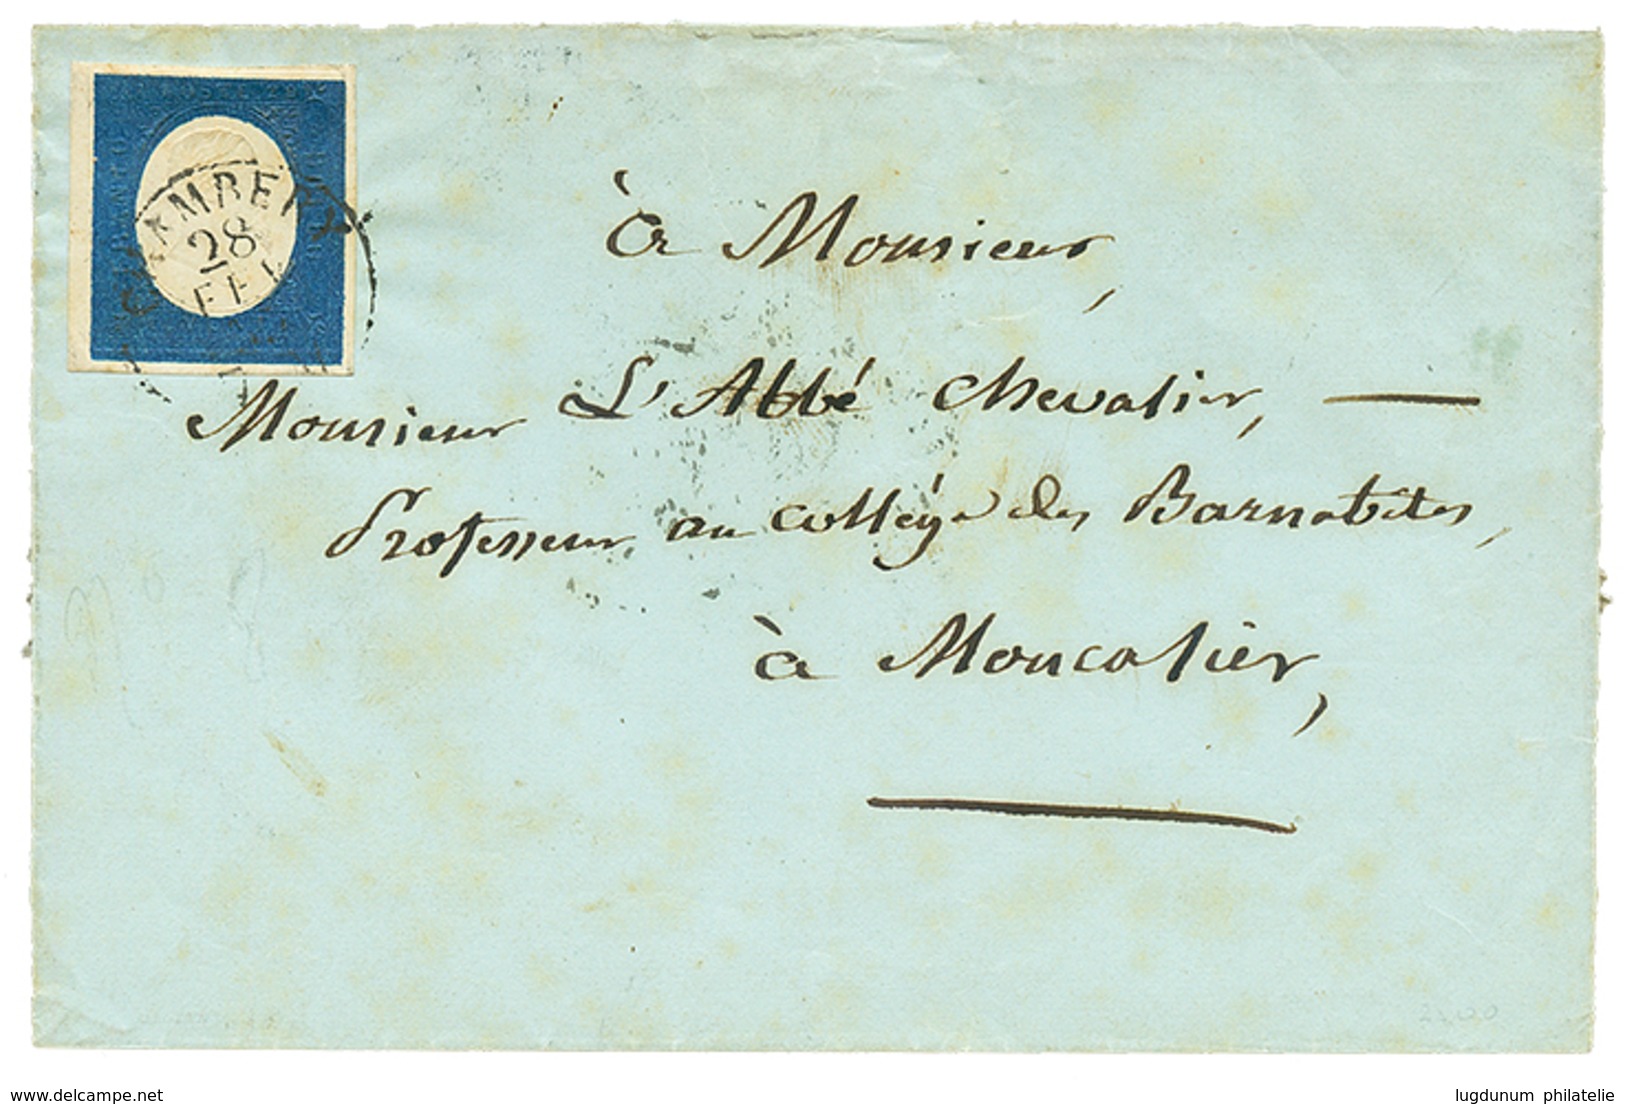 CHAMBERY
28
FE
à Monsieur,
Monsieur L'Abbé Chevalier, —
Professeur au collége des Barnabites,
à Moncalier,
delcampe.net
lugdunum philatelie